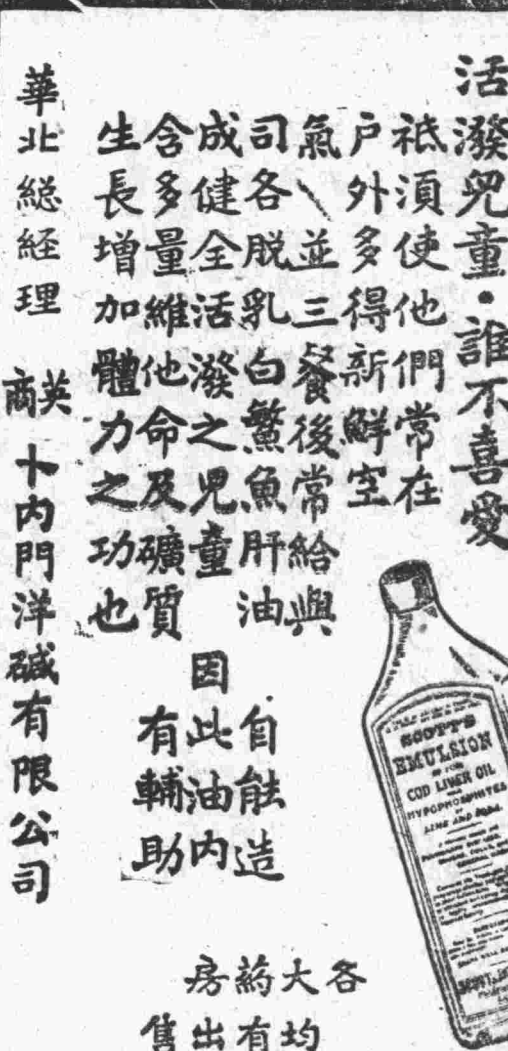 活潑兒童・誰不喜愛
祗須使他們常在
戶外多得新鮮空
氣、並三餐後常給與
司各脫乳白鰵魚肝油自能造
成健全活潑之兒童因此油內
含多量維他命及礦質有輔助
生長增加體力之功也
各大葯房
均有出售
華北総経理 英商 卜內門洋碱有限公司
SCOTT'S
EMULSION
COD LIVER OIL
HYPOPHOSPHITES
LIME AND SODA